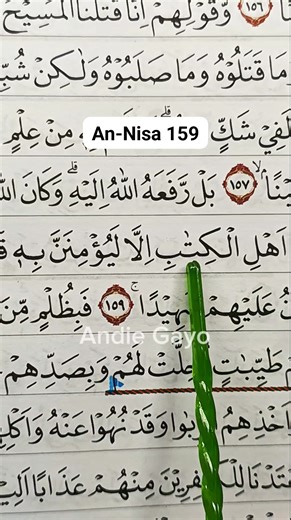 ۙ ١٥٦ وَّقَوْلِهِمْ اِنَّا قَتَلْنَا الْمَسِيْحَ
مَا قَتَلُوْهُ وَمَا صَلَبُوْهُ وَلٰكِنْ شُبِّ
لَفِيْ شَكٍّ مِنْ عِلْمٍ
An-Nisa 159
يْنًاۢ ۙ ١٥٧ بَلْ رَّفَعَهُ اللّٰهُ اِلَيْهِ ۗ وَكَانَ اللّٰ
اَهْلِ الْكِتٰبِ اِلَّا لَيُؤْمِنَنَّ بِهٖ قَ
نُ عَلَيْهِمْ شَهِيْدًا ۚ ١٥٩ فَبِظُلْمٍ مِّنَ
Andie Gayo
طَيِّبٰتٍ اُحِلَّتْ لَهُمْ وَبِصَدِّهِمْ
اَخْذِهِمُ الرِّبٰوا وَقَدْ نُهُوْا عَنْهُ وَاَكْلِ
تَدْنَا لِلْكٰفِرِيْنَ مِنْهُمْ عَذَابًا اَلِيْ